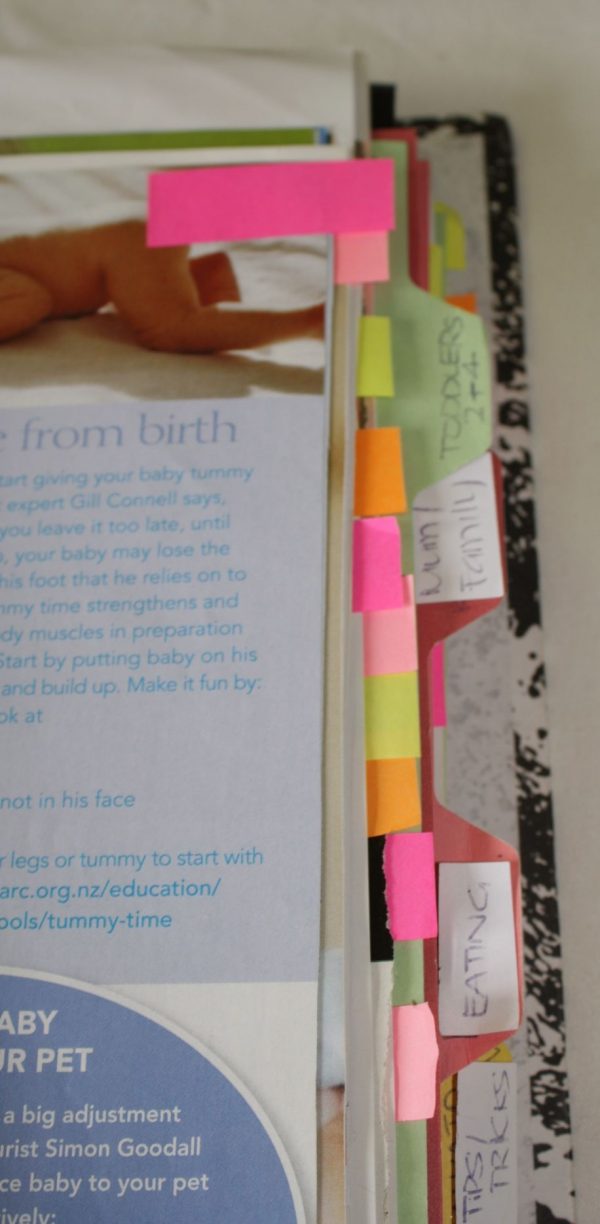 from birth
tart giving your baby tummy
expert Gill Connell says,
you leave it too late, until
, your baby may lose the
his foot that he relies on to
mmy time strengthens and
dy muscles in preparation
Start by putting baby on his
and build up. Make it fun by:
ok at
not in his face
r legs or tummy to start with
arc.org.nz/education/
ools/tummy-time
ABY
UR PET
a big adjustment
urist Simon Goodall
ce baby to your pet
ively:
TODDLERS
2+4
Mum/
Family
EATING
TIPS/
TRICKS